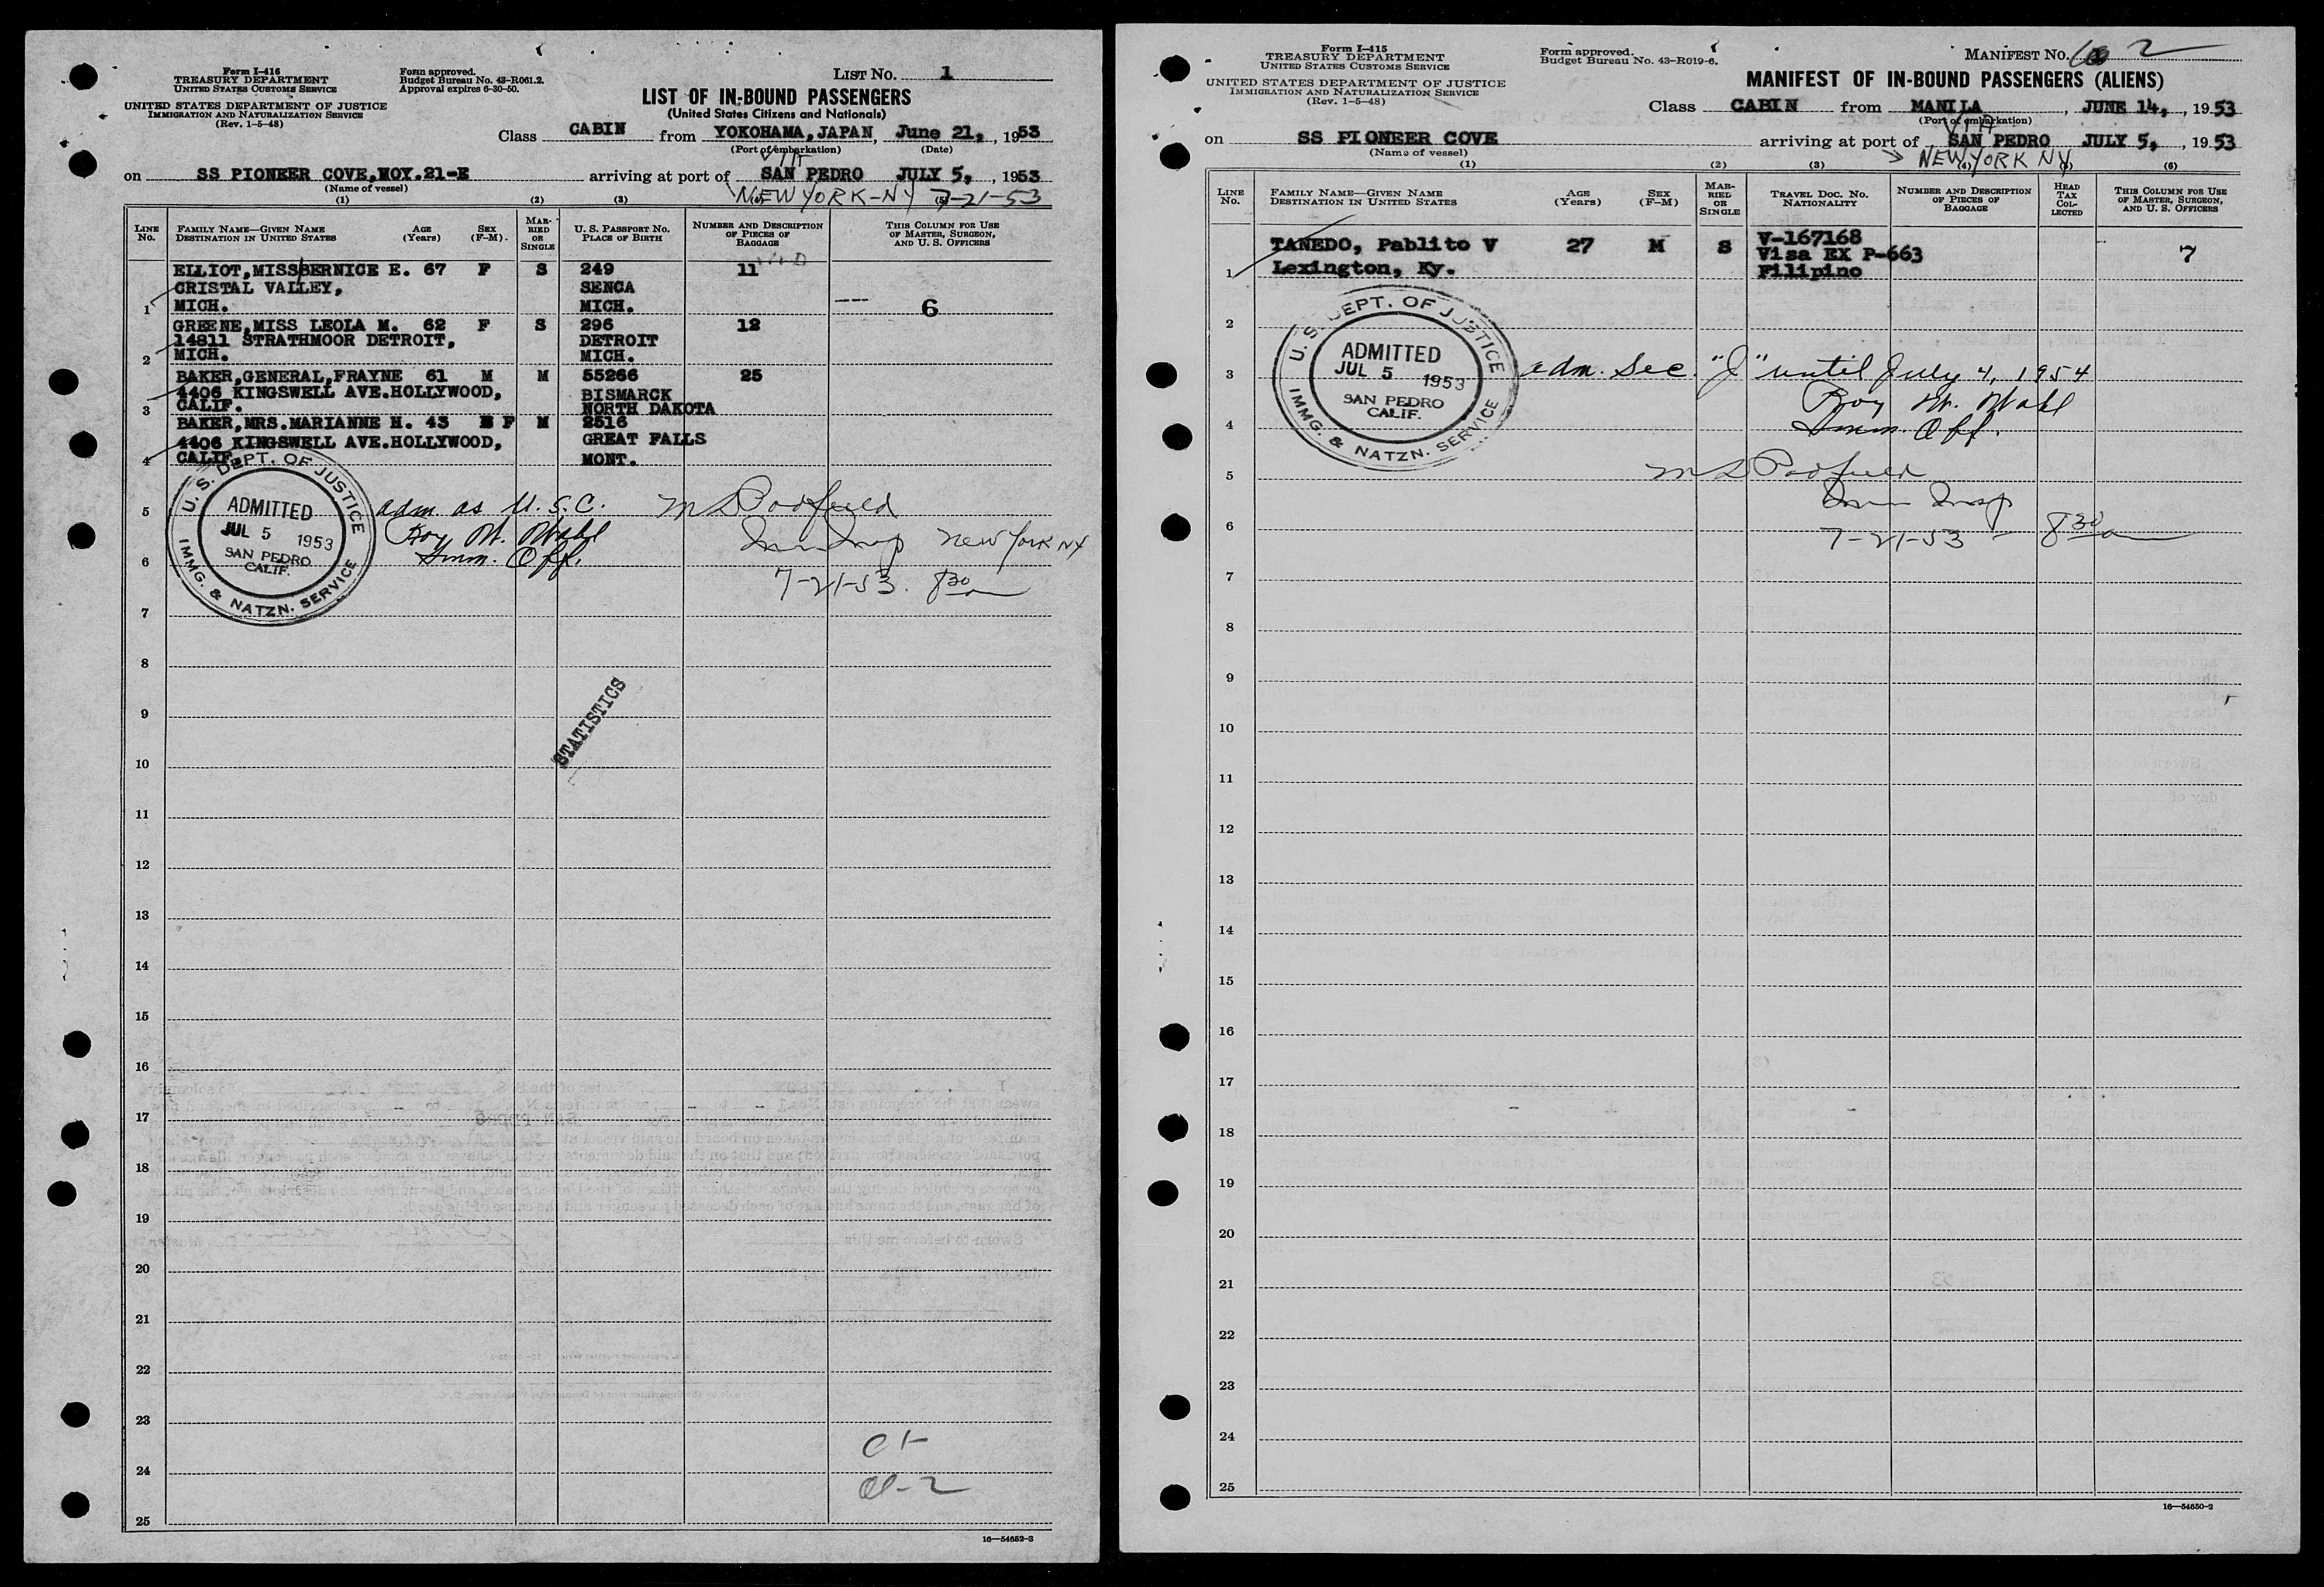 Form I-416
TREASURY DEPARTMENT
UNITED STATES CUSTOMS SERVICE
UNITED STATES DEPARTMENT OF JUSTICE
IMMIGRATION AND NATURALIZATION SERVICE
(Rev. 1-5-48)
Form approved.
Budget Bureau No. 43-R061.2.
Approval expires 6-30-50.
LIST No. 1
LIST OF IN-BOUND PASSENGERS
(United States Citizens and Nationals)
Class CABIN from YOKOHAMA, JAPAN, June 21, 1953
(Port of embarkation) (Date)
VIA
on SS PIONEER COVE, VOY.21-E arriving at port of SAN PEDRO JULY 5, 1953
(Name of vessel)
NEW YORK-NY 7-21-53
(1) (2) (3) (4) (5)
LINE No. FAMILY NAME—GIVEN NAME DESTINATION IN UNITED STATES AGE (Years) SEX (F-M) MARRIED OR SINGLE U. S. PASSPORT No. PLACE OF BIRTH NUMBER AND DESCRIPTION OF PIECES OF BAGGAGE THIS COLUMN FOR USE OF MASTER, SURGEON, AND U. S. OFFICERS
ELLIOT, MISS BERNICE E. 67 F S 249 11
CRISTAL VALLEY, SENCA
1 MICH. MICH. 6
GREENE, MISS LEOLA M. 62 F S 296 12
14811 STRATHMOOR DETROIT, DETROIT
2 MICH. MICH.
BAKER, GENERAL, FRAYNE 61 M M 55266 25
4406 KINGSWELL AVE.HOLLYWOOD, BISMARCK
3 CALIF. NORTH DAKOTA
BAKER, MRS.MARIANNE H. 43 F M 2516
4406 KINGSWELL AVE.HOLLYWOOD, GREAT FALLS
4 CALIF. MONT.
U. S. DEPT. OF JUSTICE
ADMITTED
JUL 5 1953
SAN PEDRO
CALIF.
IMMG. & NATZN. SERVICE
5 adm as U.S.C. M S Padfield
Roy M. Wahl
Imm Insp New York NY
6 Imm. Off.
7-21-53. 8 30 am
7
8
STATISTICS
9
10
11
12
13
14
15
16
17
18
19
20
21
22
23
24
25
16—54652-3
Form I-415
TREASURY DEPARTMENT
UNITED STATES CUSTOMS SERVICE
UNITED STATES DEPARTMENT OF JUSTICE
IMMIGRATION AND NATURALIZATION SERVICE
(Rev. 1-5-48)
Form approved.
Budget Bureau No. 43-R019-6.
MANIFEST No. 2
MANIFEST OF IN-BOUND PASSENGERS (ALIENS)
Class CABIN from MANILA, JUNE 14, 1953
(Port of embarkation)
VIA
on SS PIONEER COVE arriving at port of SAN PEDRO JULY 5, 1953
(Name of vessel)
NEW YORK NY
(1) (2) (3) (4) (5) (6)
LINE No. FAMILY NAME—GIVEN NAME DESTINATION IN UNITED STATES AGE (Years) SEX (F-M) MARRIED OR SINGLE TRAVEL DOC. No. NATIONALITY NUMBER AND DESCRIPTION OF PIECES OF BAGGAGE HEAD TAX COLLECTED THIS COLUMN FOR USE OF MASTER, SURGEON, AND U. S. OFFICERS
TANEDO, Pablito V 27 M S V-167168
Visa EX P-663 7
1 Lexington, Ky. Filipino
2
U. S. DEPT. OF JUSTICE
ADMITTED
JUL 5 1953
SAN PEDRO
CALIF.
IMMG. & NATZN. SERVICE
3 adm. Sec. "J" until July 4, 1954
Roy M. Wahl
4 Imm. Off.
5 M S Padfield
Imm Insp
6 7-21-53 8 30 am
7
8
9
10
11
12
13
14
15
16
17
18
19
20
21
22
23
24
25
16—54650-2